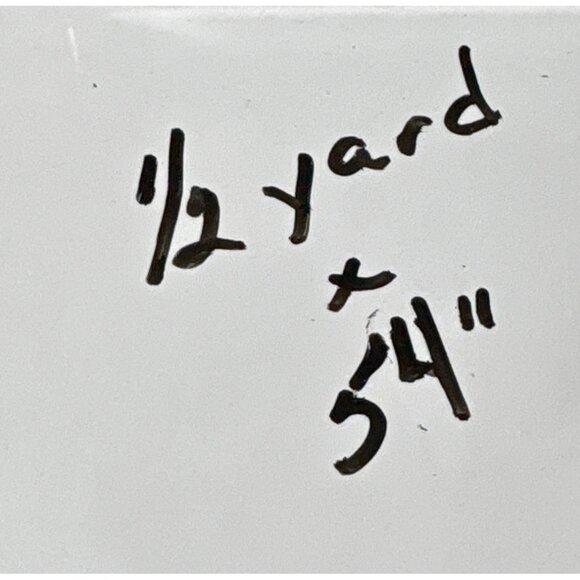 1/2 yard
x
54"